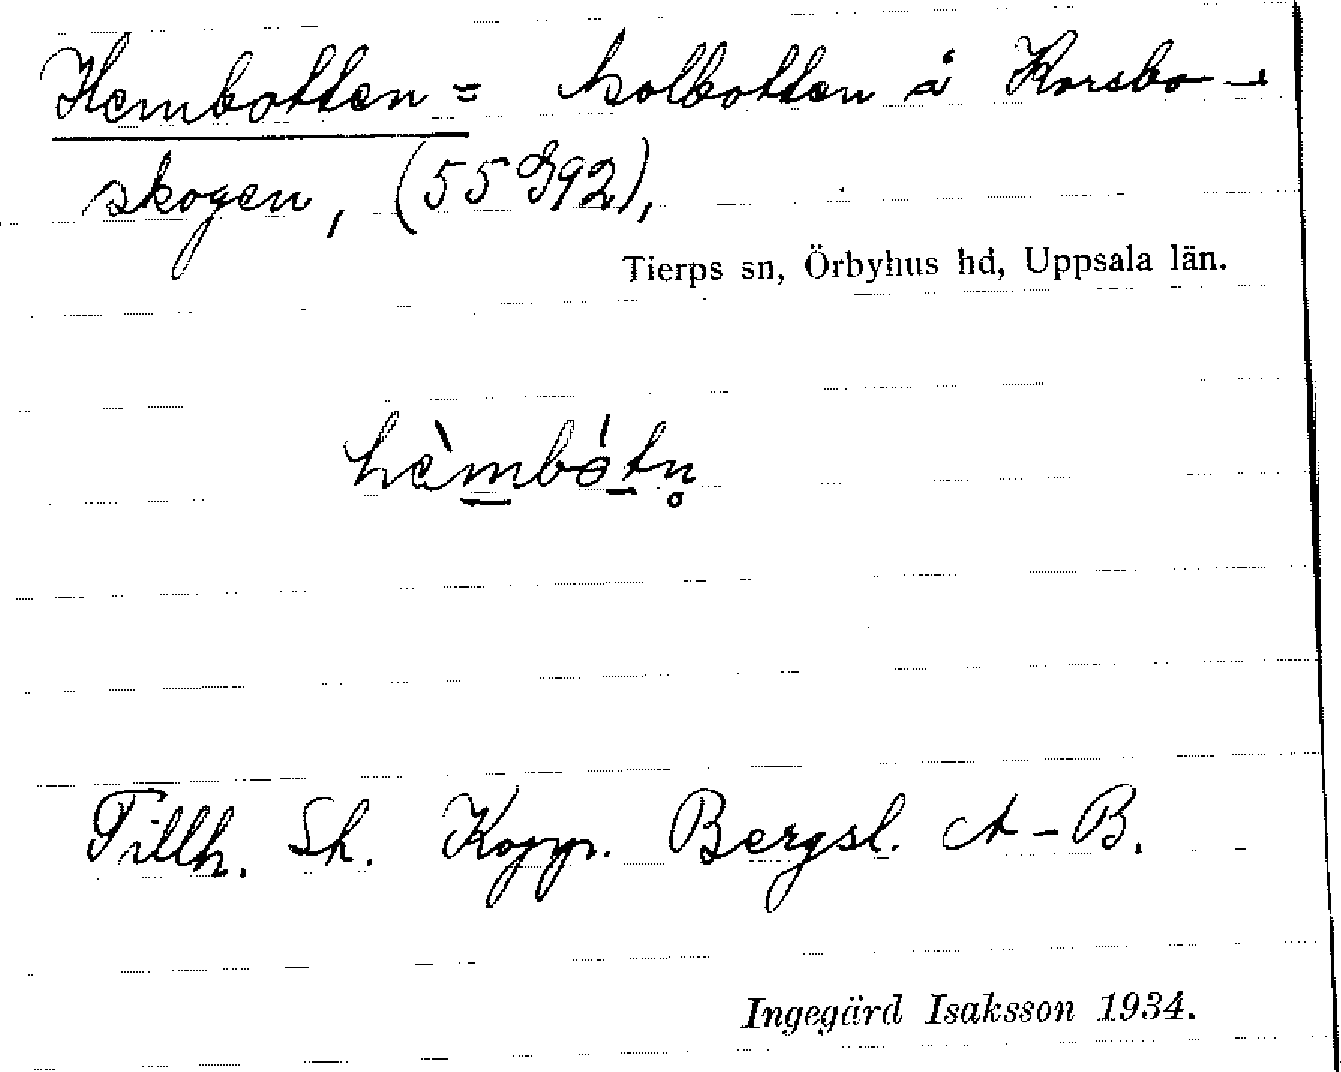 Hembotten = kolbotten å Korsbo-
skogen, (55 I92),
Tierps sn, Örbyhus hd, Uppsala län.
hèmbótn̥
Tillh. St. Kopp. Bergsl. A-B.
Ingegärd Isaksson 1934.